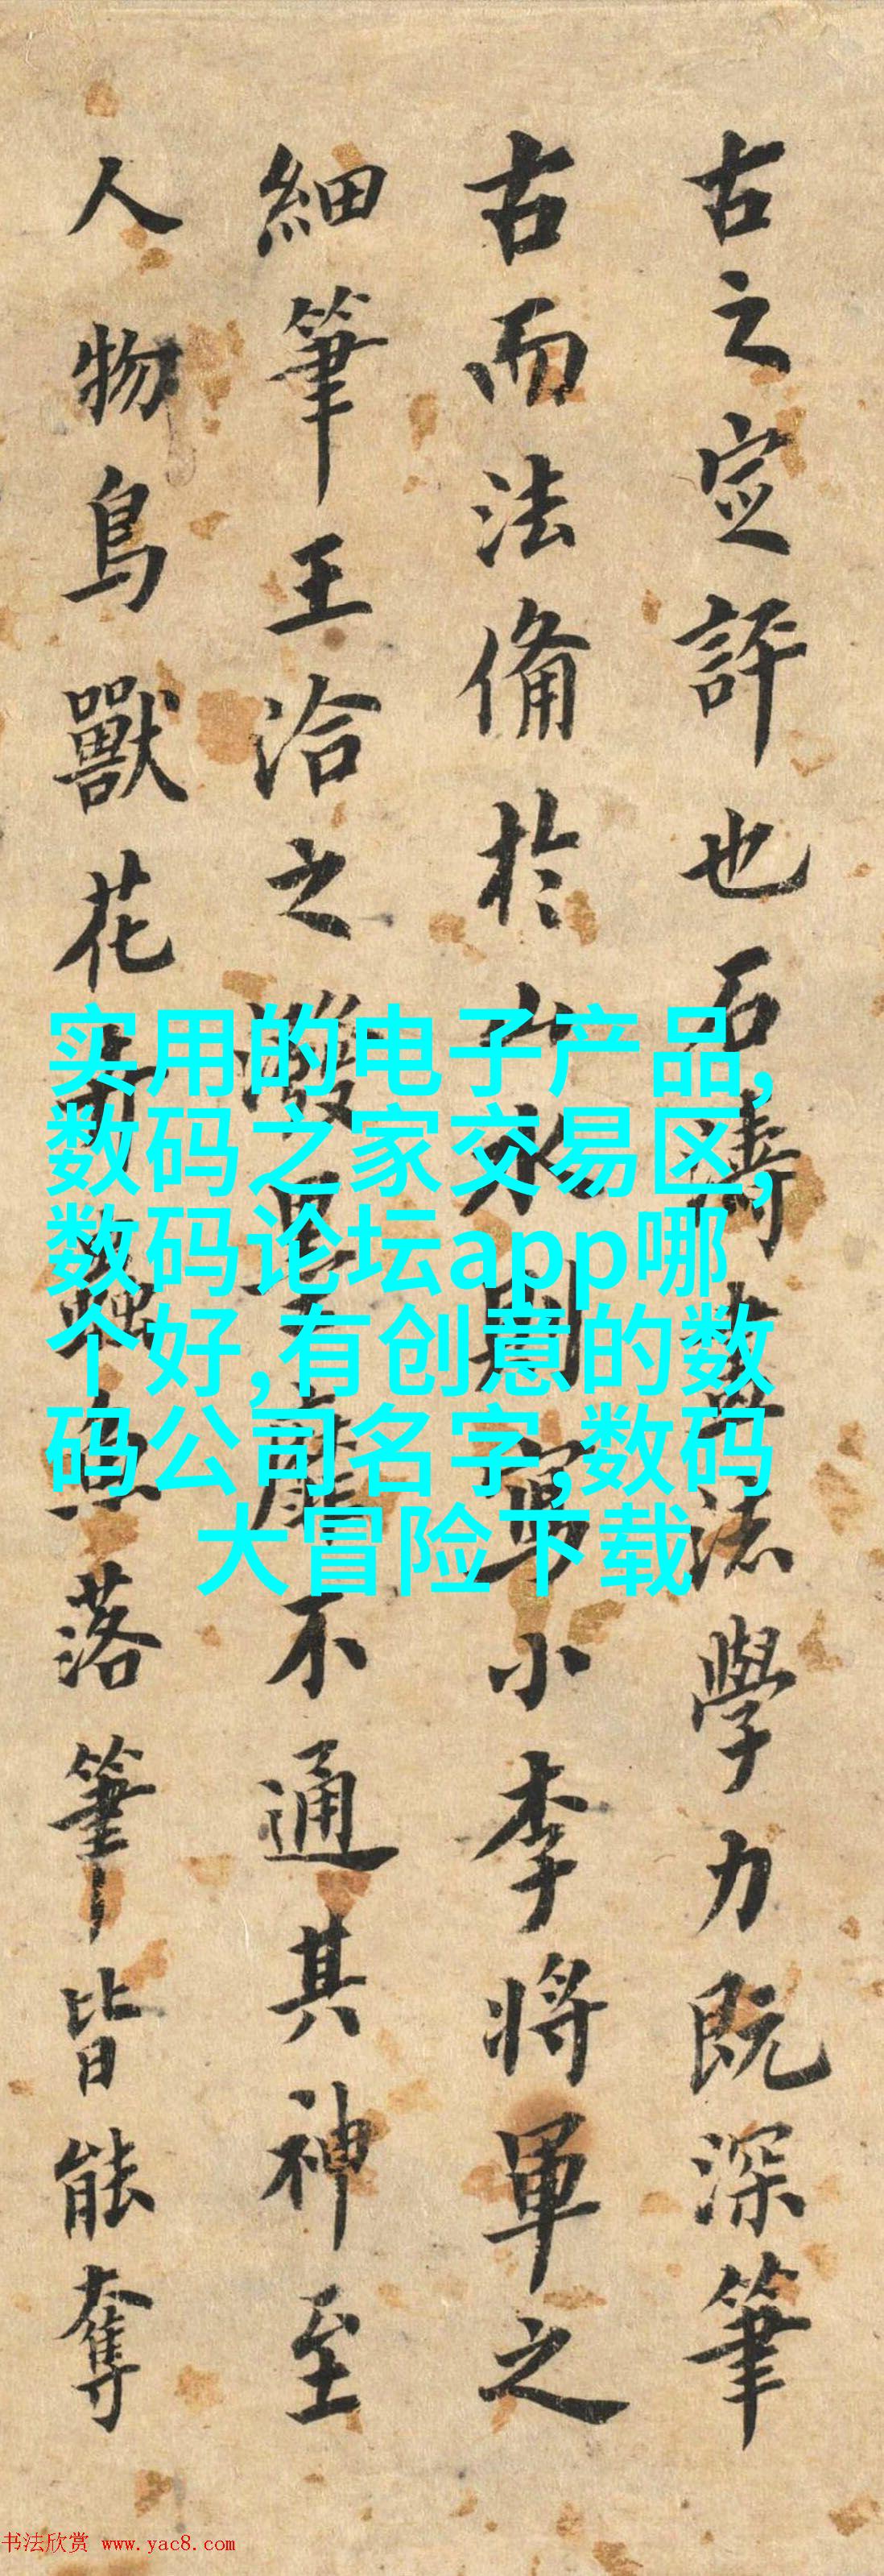 古之宝評也石濤書法學力既深筆
古而法備於山水則寫小李將軍之
細筆王洽之潑墨靡不通其神至
人物鳥獸花卉蟲魚落筆皆能奪
实用的电子产品,
数码之家交易区,
数码论坛app哪
个好,有创意的数
码公司名字,数码
大冒险下载
书法欣赏 www.yac8.com